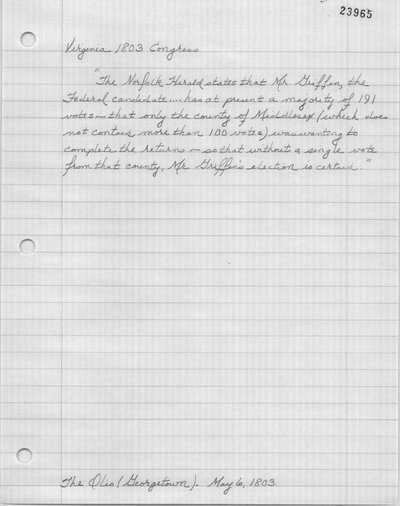 23965
Virginia 1803 Congress
"The Norfolk Herald states that Mr. Griffin, the
Federal candidate.... has at present a majority of 191
votes - that only the county of Middlesex (which does
not contain more than 100 votes) was wanting to
complete the returns - so that without a single vote
from that county, Mr. Griffin's election is certain."
The Olio (Georgetown). May 6, 1803